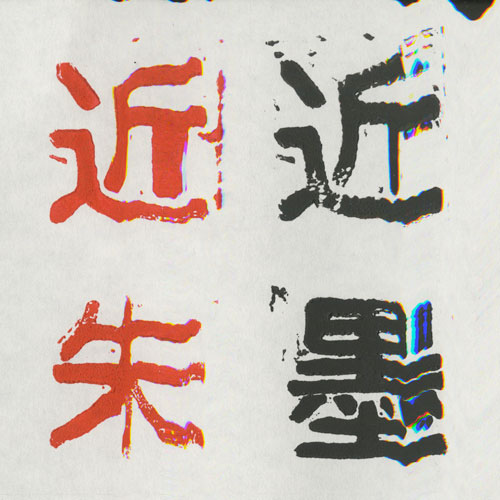 近朱
近墨